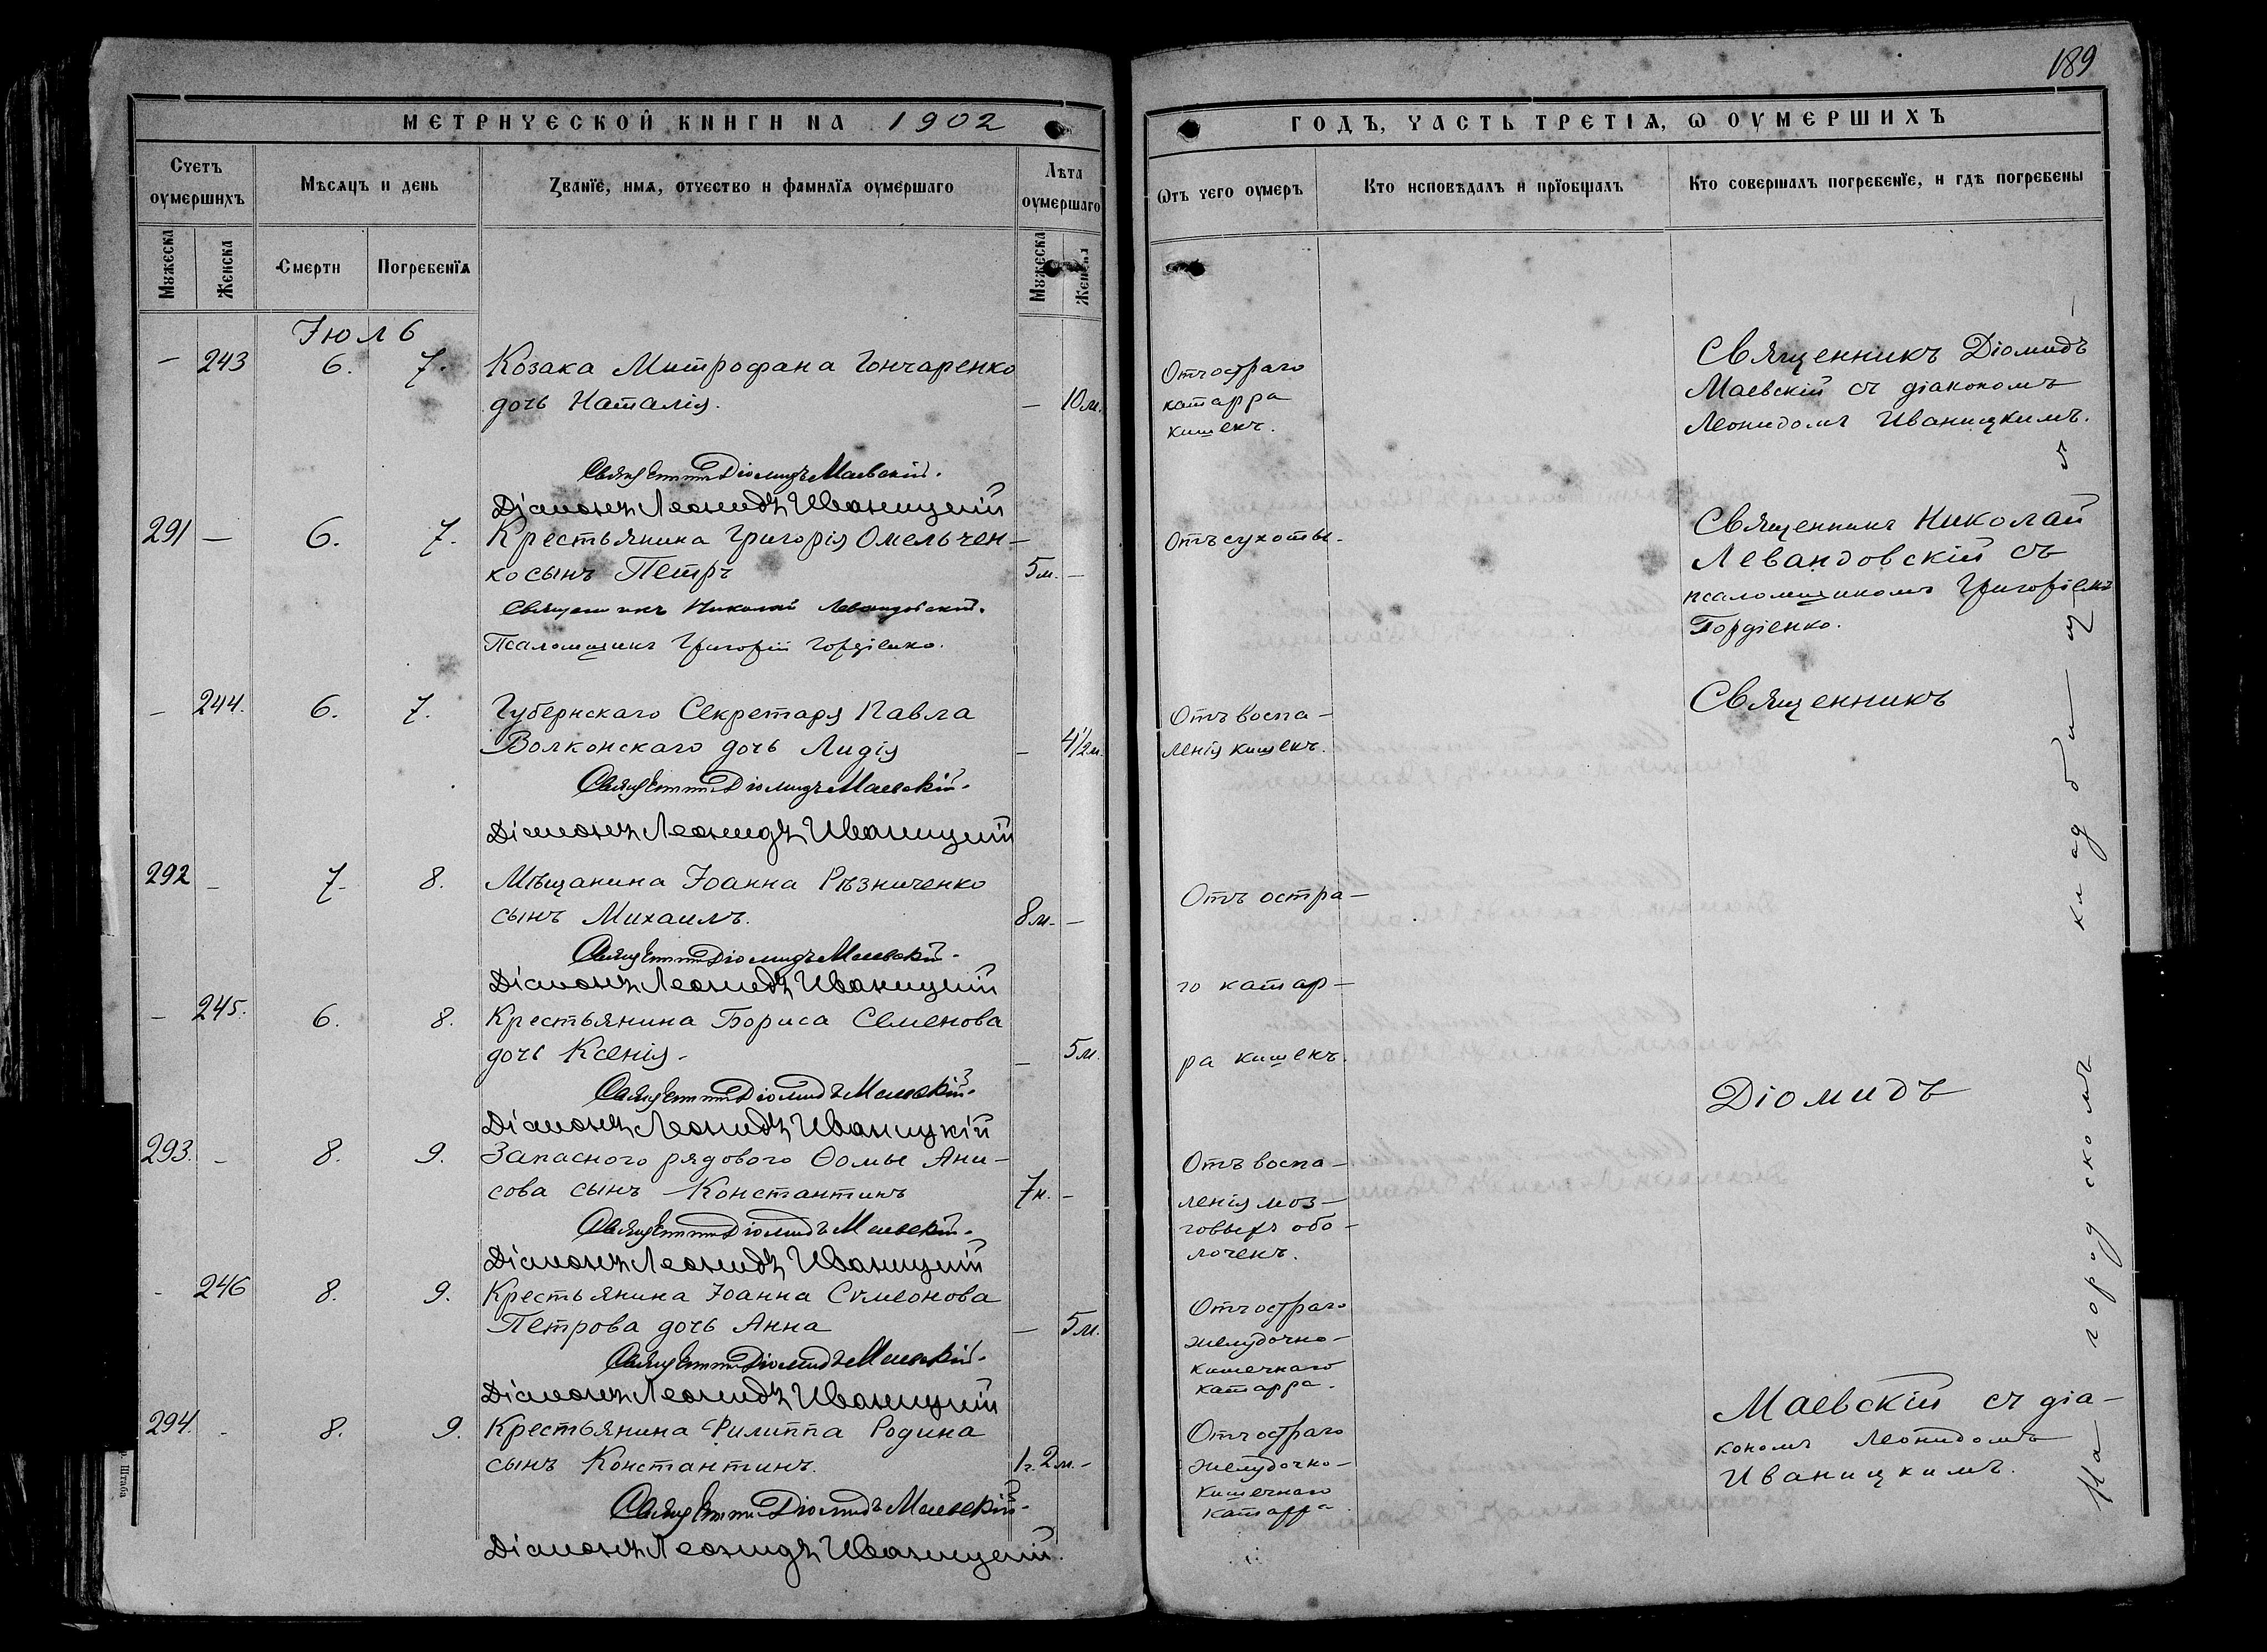 189
МЕТРИЧЕСКОЙ КНИГИ НА 1902
ГОДЪ, ЧАСТЬ ТРЕТІЯ, Ѡ ОУМЕРШИХЪ
Счетъ оумершихъ
Мѣсяцъ и день
Званіе, имя, отчество и фамилія оумершаго
Лѣта оумершаго
Ѿтъ чего оумеръ
Кто исповѣдалъ и пріобщалъ
Кто совершалъ погребеніе, и гдѣ погребены
Мужеска
Женска
Смерти
Погребенія
Мужеска
Женска
Іюль
— 243 6. 7. Козака Митрофана Гончаренко
дочь Наталія. — 10 м.
Отъ остраго
катарра
кишекъ.
Священникъ Діомидъ
Маевскій съ діакономъ
Леонидомъ Иваницкимъ.
Священникъ Діомидъ Маевскій.
Діаконъ Леонидъ Иваницкій
291 — 6. 7. Крестьянина Григорія Омельчен-
ко сынъ Петръ 5 м. —
Отъ сухоты.
Священникъ Николай
Левандовскій съ
псаломщикомъ Григоріемъ
Гордіенко.
Священникъ Николай Левандовскій.
Псаломщикъ Григорій Гордіенко.
— 244. 6. 7. Губернскаго Секретаря Павла
Волконскаго дочь Лидія — 4 1/2 м.
Отъ воспа-
ленія кишекъ.
Священникъ
Священникъ Діомидъ Маевскій.
Діаконъ Леонидъ Иваницкій
292 — 7. 8. Мѣщанина Іоанна Рѣзниченко
сынъ Михаилъ. 8 м. —
Отъ остра-
Священникъ Діомидъ Маевскій.
Діаконъ Леонидъ Иваницкій
го катар-
— 245. 6. 8. Крестьянина Бориса Семенова
дочь Ксенія. — 5 м.
ра кишекъ.
Діомидъ
Священникъ Діомидъ Маевскій.
Діаконъ Леонидъ Иваницкій
293. — 8. 9. Запасного рядового Ѳомы Ани-
сова сынъ Константинъ 7 н. —
Отъ воспа-
ленія моз-
говыхъ обо-
лочекъ.
Священникъ Діомидъ Маевскій.
Діаконъ Леонидъ Иваницкій
- 246 8. 9. Крестьянина Іоанна Сѵмеонова
Петрова дочь Анна — 5 м.
Отъ остраго
желудочно-
кишечнаго
катарра.
Священникъ Діомидъ Маевскій.
Діаконъ Леонидъ Иваницкій
294. - 8. 9. Крестьянина Филиппа Родина
сынъ Константинъ. 1 г. 2 м. -
Отъ остраго
желудочно-
кишечнаго
катарра.
Маевскій съ діа-
кономъ Леонидомъ
Иваницкимъ.
Священникъ Діомидъ Маевскій.
Діаконъ Леонидъ Иваницкій.
На городскомъ кладби-щ-ѣ